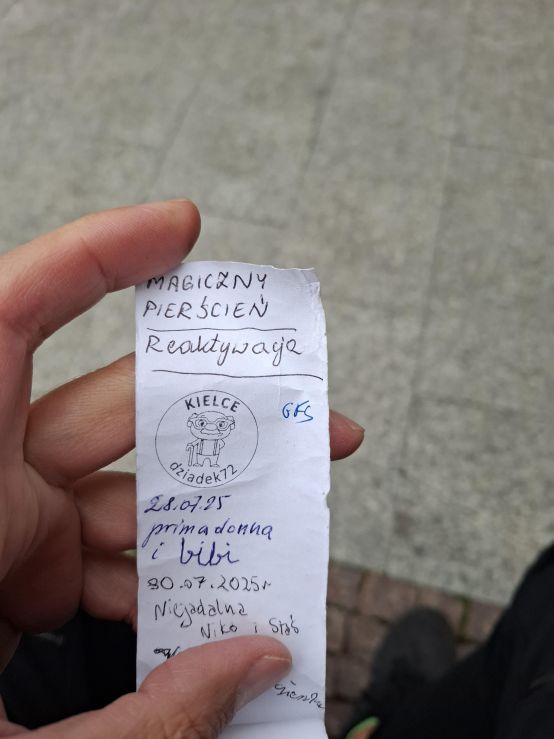 MAGICZNY
PIERŚCIEŃ
Reaktywacja
KIELCE
dziadek72
GFS
28.07.25
primadonna
i bibi
30.07.2025r
Niejadalna
Niko i Staś